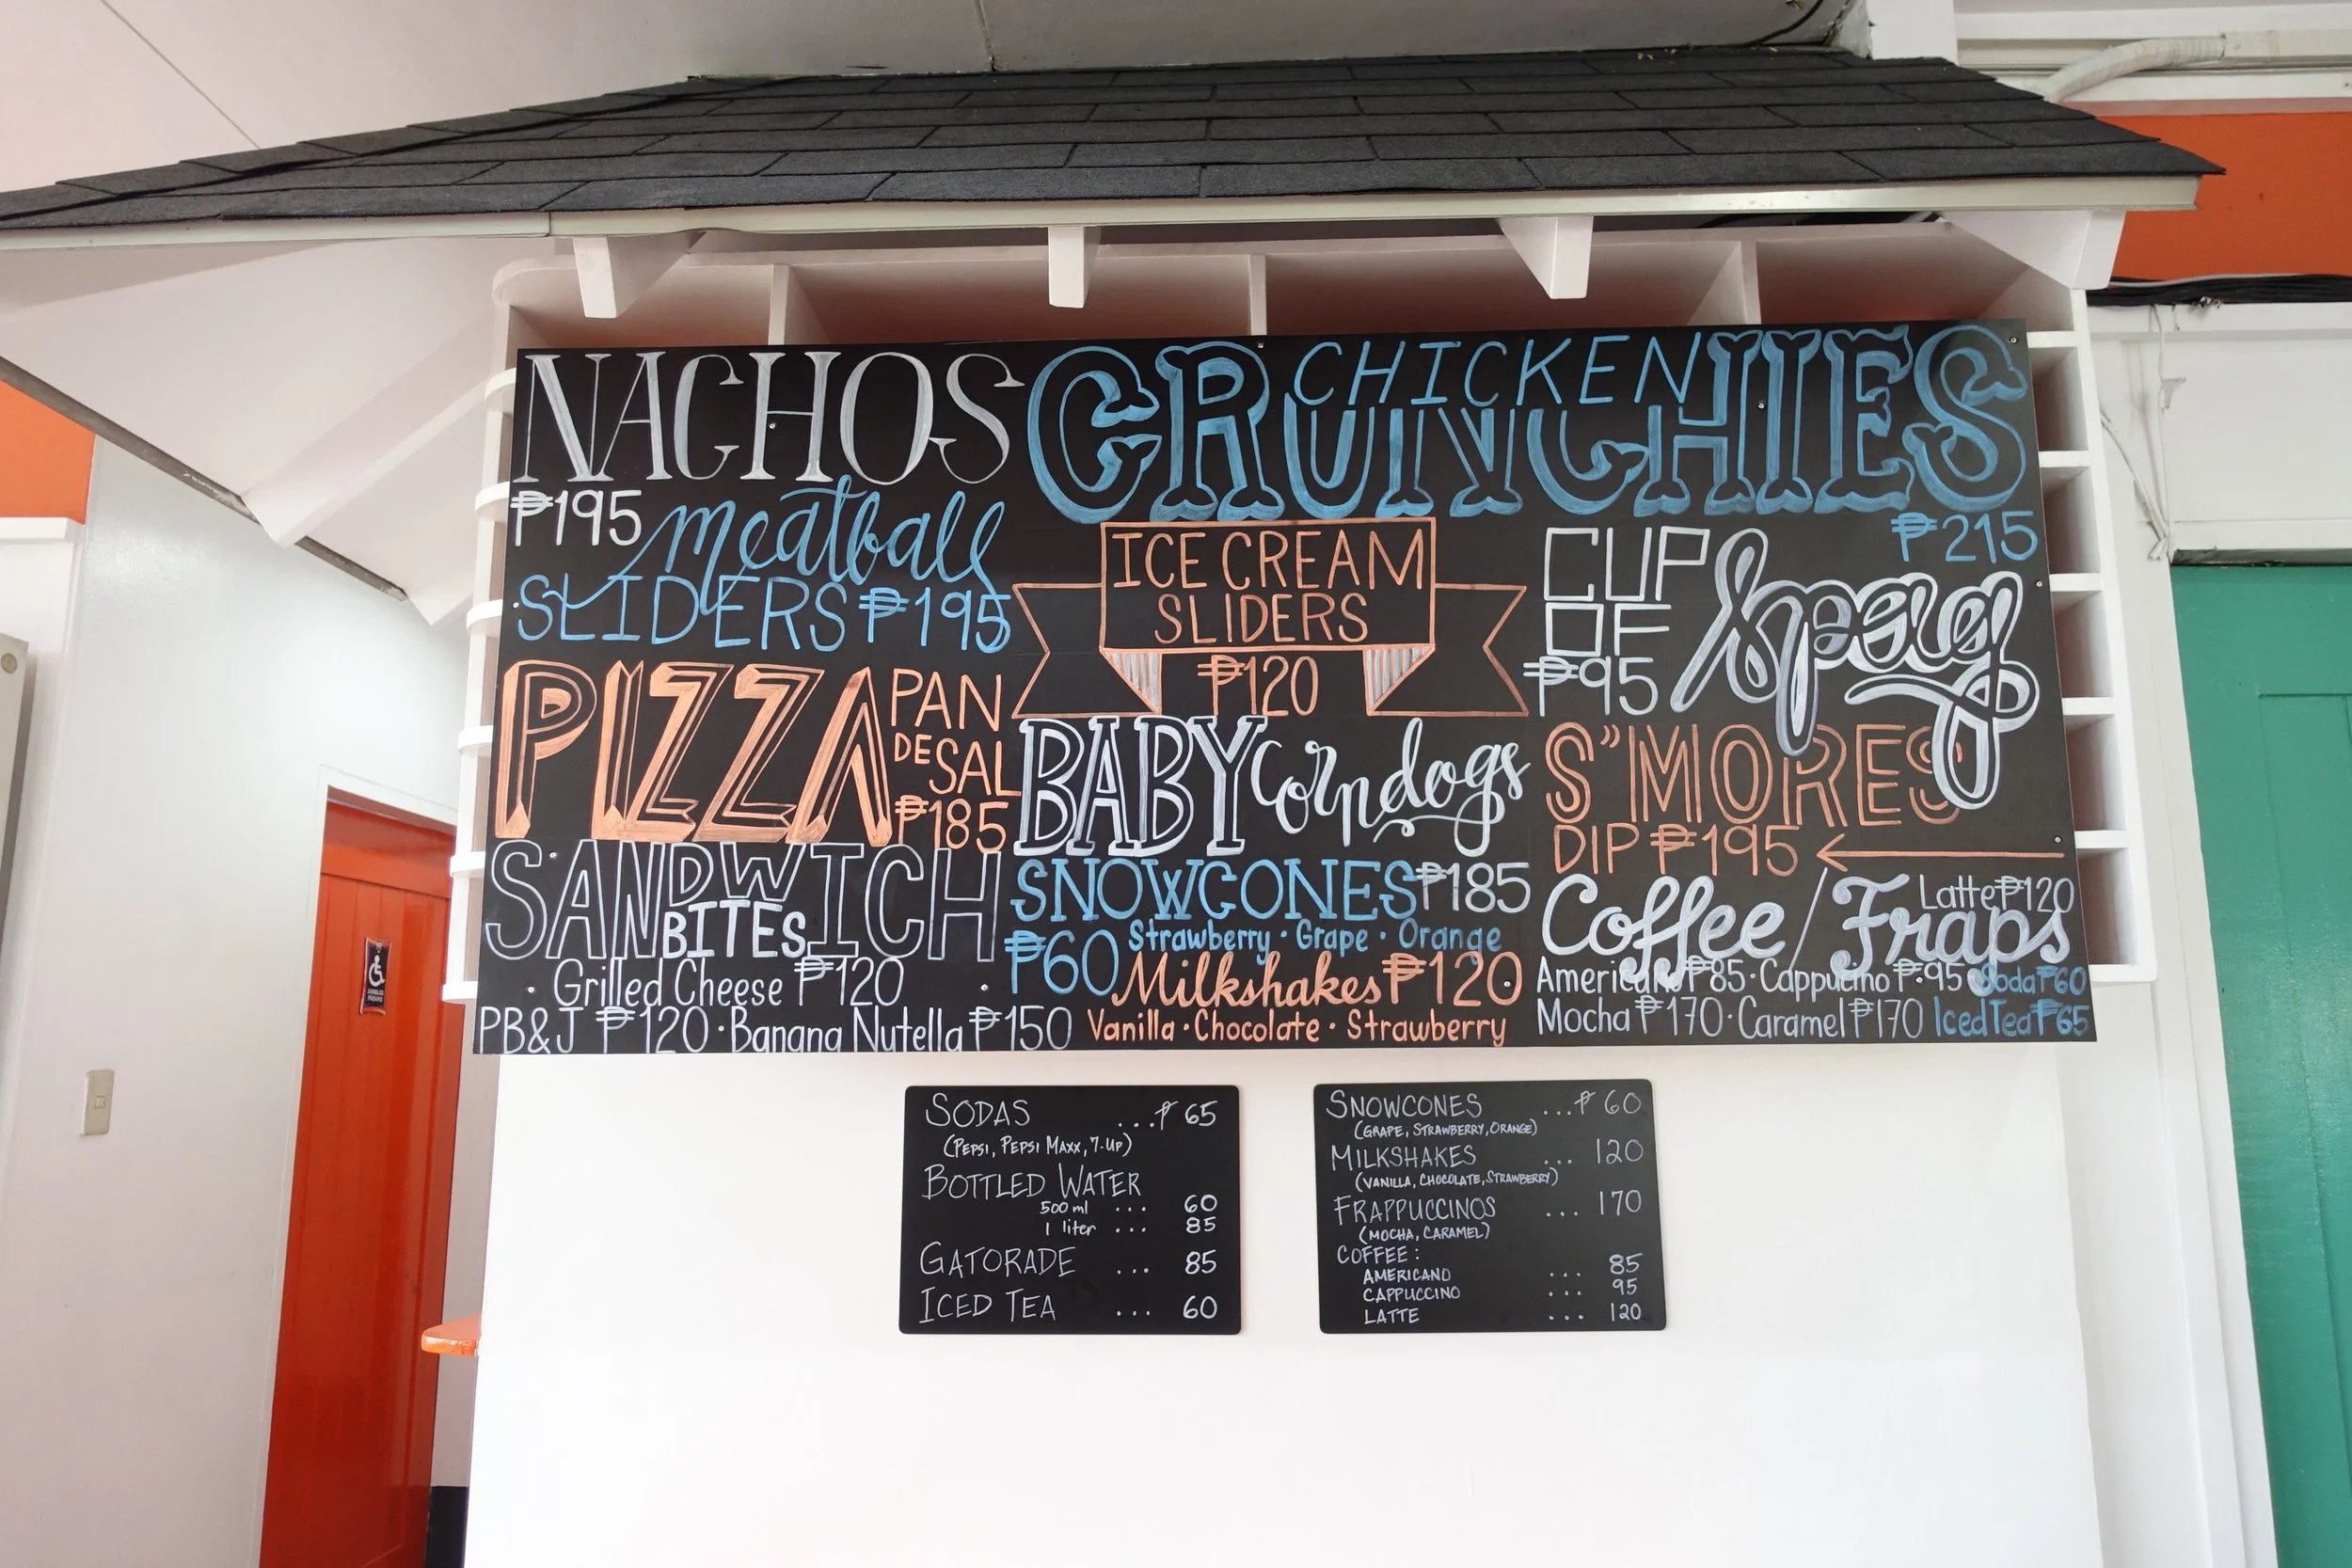 NACHOS
₱195
meatball
SLIDERS ₱195
PIZZA PAN
DE SAL
₱185
SANDWICH
BITES
Grilled Cheese ₱120
PB&J ₱120 · Banana Nutella ₱150
CHICKEN
CRUNCHIES
₱215
ICE CREAM
SLIDERS
₱120
BABY corndogs
₱185
SNOWCONES
₱60 Strawberry · Grape · Orange
Milkshakes ₱120
Vanilla · Chocolate · Strawberry
CUP
OF Spag
₱95
S'MORES
DIP ₱195
Coffee / Fraps
Latte ₱120
Americano ₱85 · Cappucino ₱95 Soda ₱60
Mocha ₱170 · Caramel ₱170 Iced Tea ₱65
SODAS ...₱ 65
(PEPSI, PEPSI MAXX, 7-UP)
BOTTLED WATER
500 ml ... 60
1 liter ... 85
GATORADE ... 85
ICED TEA ... 60
SNOWCONES ...₱ 60
(GRAPE, STRAWBERRY, ORANGE)
MILKSHAKES ... 120
(VANILLA, CHOCOLATE, STRAWBERRY)
FRAPPUCCINOS ... 170
(MOCHA, CARAMEL)
COFFEE:
AMERICANO ... 85
CAPPUCCINO ... 95
LATTE ... 120